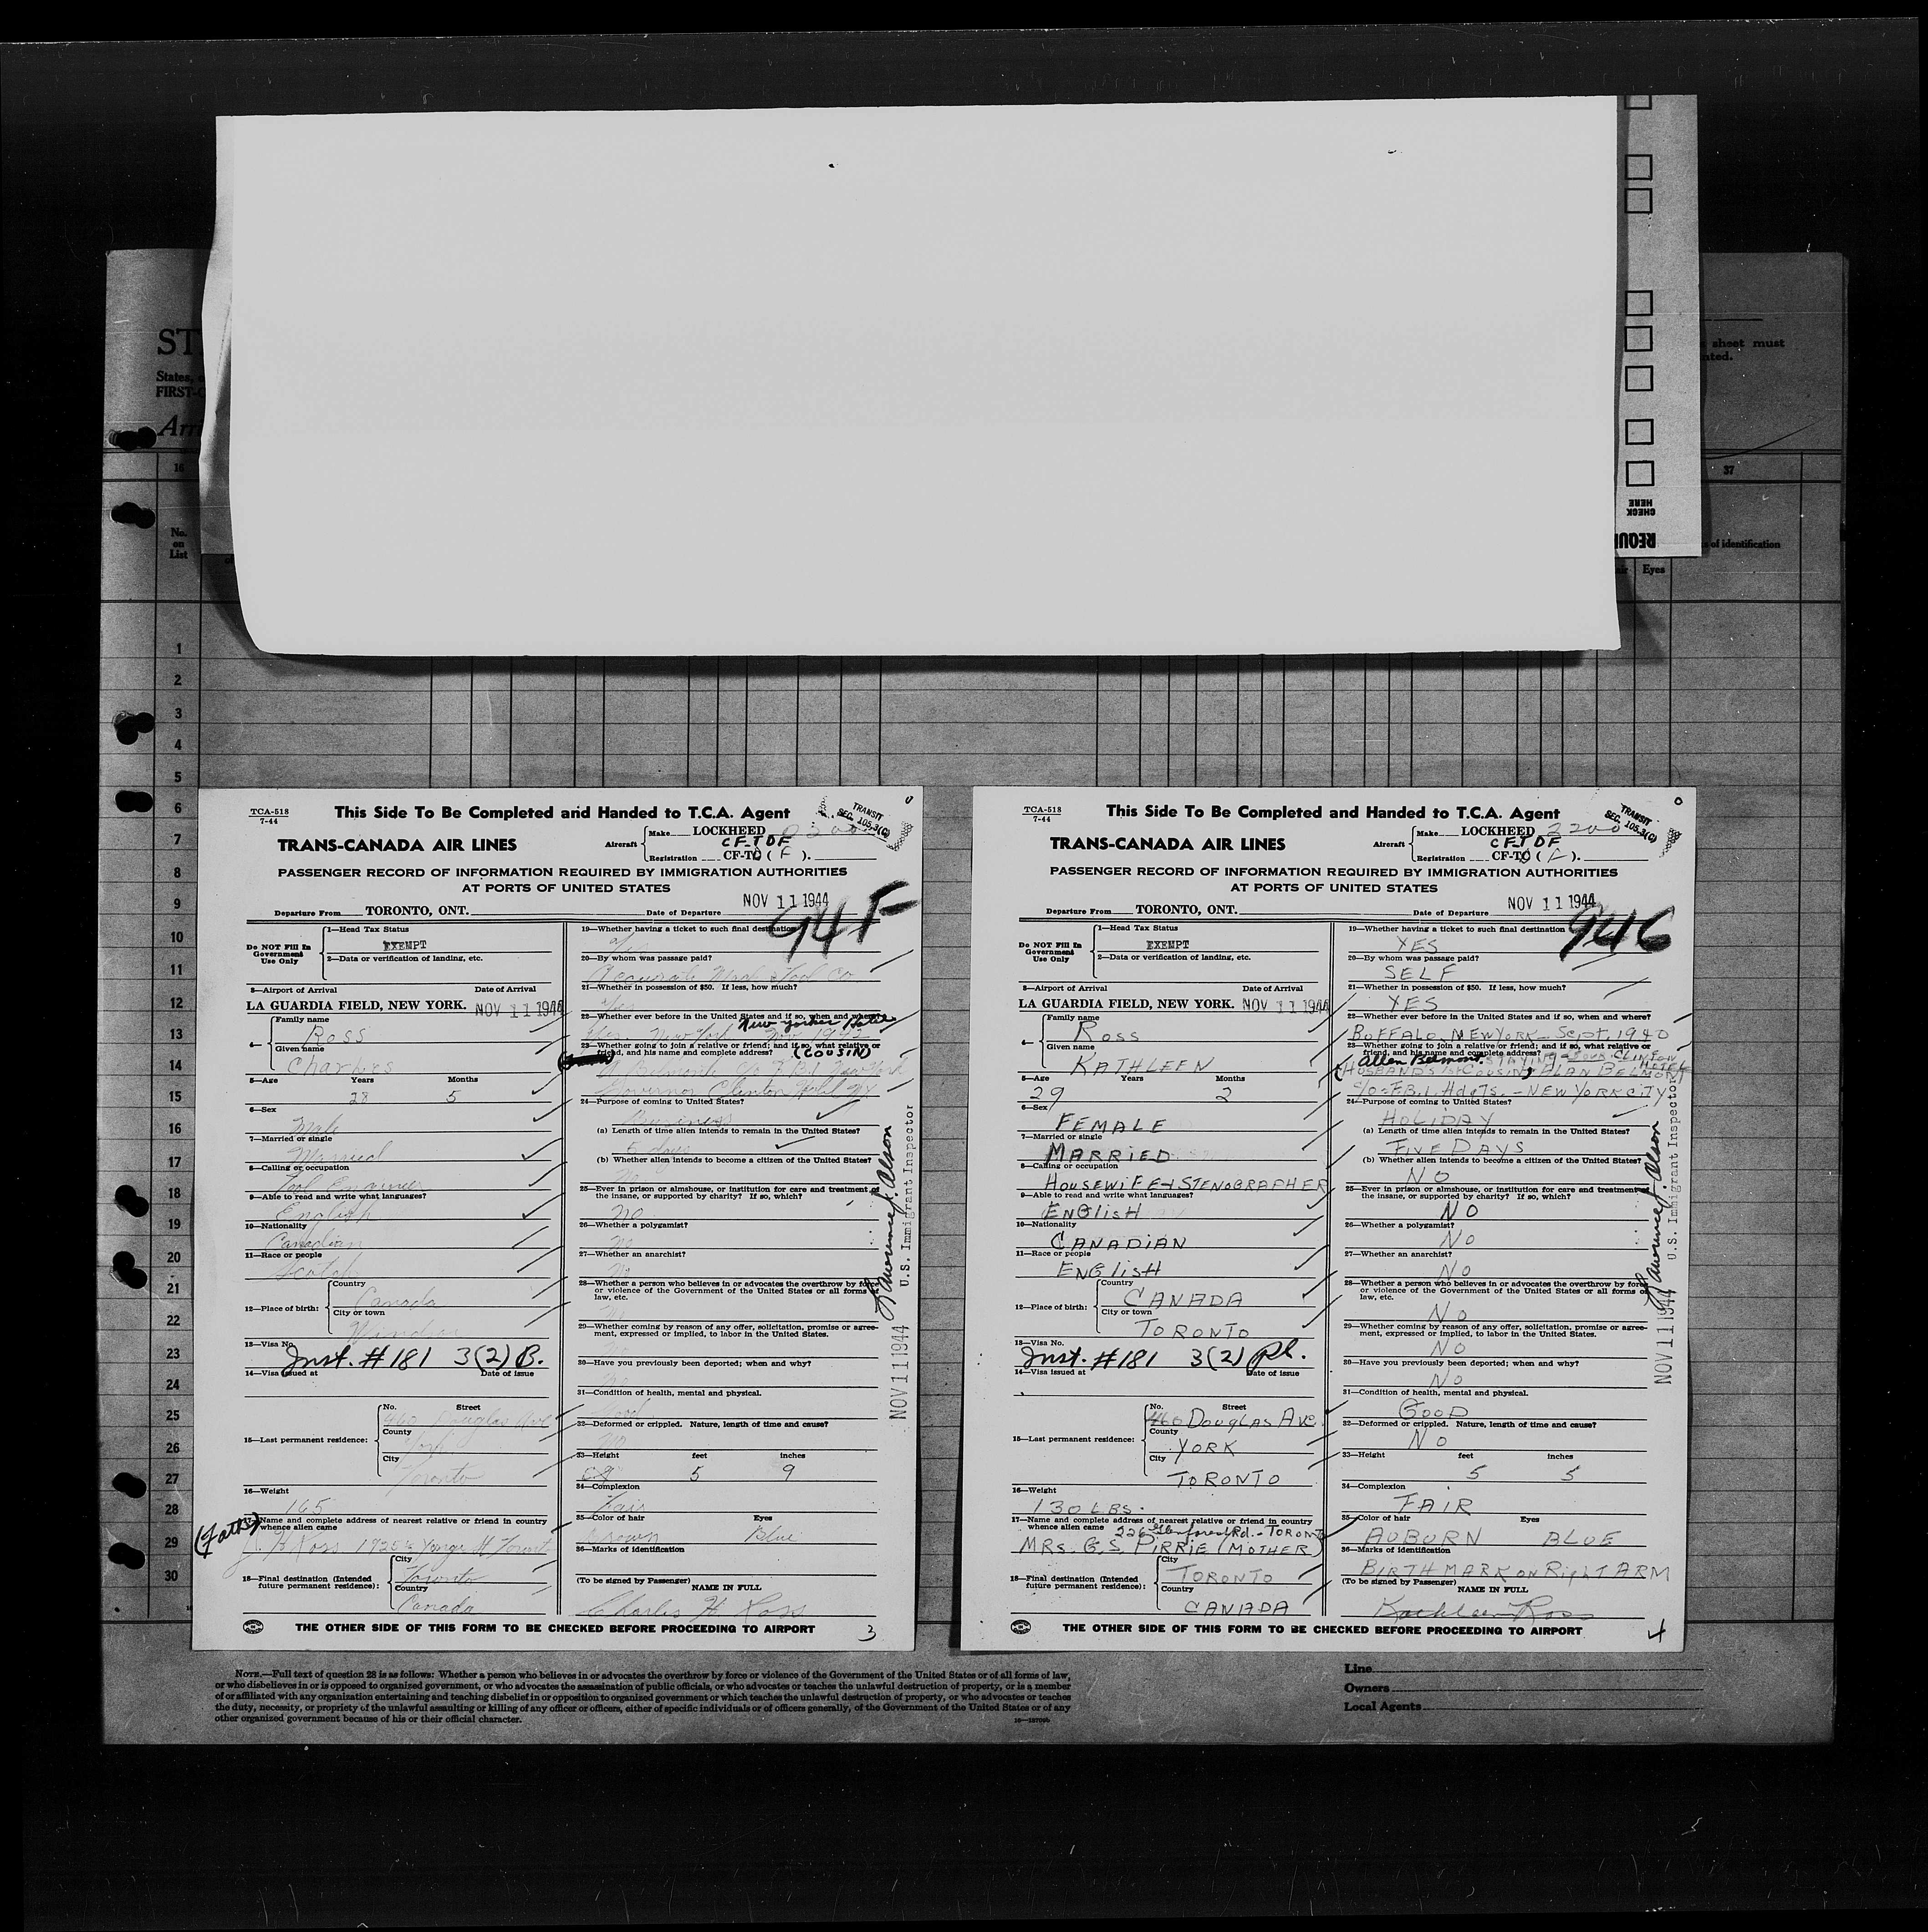 ST
States,
FIRST-C
Arri
16
No.
on
List
sheet must
nted.
37
s of identification
Eyes
CHECK
HERE
REQUI
1
2
3
4
5
6
7
8
9
10
11
12
13
14
15
16
17
18
19
20
21
22
23
24
25
26
27
28
29
30
TCA-518
7-44
This Side To Be Completed and Handed to T.C.A. Agent
TRANSIT
SEC. 105.3(C)
TRANS-CANADA AIR LINES
Aircraft
Make LOCKHEED
CF-TDF
Registration CF-TC (F).
PASSENGER RECORD OF INFORMATION REQUIRED BY IMMIGRATION AUTHORITIES
AT PORTS OF UNITED STATES
Departure From TORONTO, ONT.
Date of Departure NOV 11 1944
94F
Do NOT Fill In
Government
Use Only
1—Head Tax Status
EXEMPT
2—Data or verification of landing, etc.
3—Airport of Arrival Date of Arrival
LA GUARDIA FIELD, NEW YORK. NOV 11 1944
4— Family name
Ross
Given name
Charles
5—Age Years Months
28 5
6—Sex
Male
7—Married or single
Married
8—Calling or occupation
Tool Engineer
9—Able to read and write what languages?
English
10—Nationality
Canadian
11—Race or people
Scotch
12—Place of birth:
Country
Canada
City or town
Windsor
13—Visa No.
Inst. #181 3(2) B.
14—Visa issued at Date of issue
15—Last permanent residence:
No. Street
460 Douglas Ave
County
York
City
Toronto
16—Weight
165
(Father)
17—Name and complete address of nearest relative or friend in country
whence alien came
Ross 1925 Yonge St Toronto
18—Final destination (Intended
future permanent residence):
City
Toronto
Country
Canada
19—Whether having a ticket to such final destination
20—By whom was passage paid?
Accurate Mach & Tool Co
21—Whether in possession of $50. If less, how much?
Yes
22—Whether ever before in the United States and if so, when and where?
New Yorker Hotel
Yes New York Nov 1942
23—Whether going to join a relative or friend; and if so, what relative or
friend, and his name and complete address? (COUSIN)
Belmont c/o F.B.I. New York
Governor Clinton Hotel NY
24—Purpose of coming to United States?
Business
(a) Length of time alien intends to remain in the United States?
5 days
(b) Whether alien intends to become a citizen of the United States?
No
25—Ever in prison or almshouse, or institution for care and treatment of
the insane, or supported by charity? If so, which?
no
26—Whether a polygamist?
no
27—Whether an anarchist?
no
28—Whether a person who believes in or advocates the overthrow by force
or violence of the Government of the United States or all forms of
law, etc.
29—Whether coming by reason of any offer, solicitation, promise or agree-
ment, expressed or implied, to labor in the United States.
30—Have you previously been deported; when and why?
no
31—Condition of health, mental and physical.
Good
32—Deformed or crippled. Nature, length of time and cause?
no
33—Height feet inches
5 9
34—Complexion
Fair
35—Color of hair Eyes
Brown Blue
36—Marks of identification
(To be signed by Passenger) NAME IN FULL
Charles H Ross
THE OTHER SIDE OF THIS FORM TO BE CHECKED BEFORE PROCEEDING TO AIRPORT
3
NOV 11 1944 Lawrence J. Olson
U.S. Immigrant Inspector
TCA-518
7-44
This Side To Be Completed and Handed to T.C.A. Agent
TRANSIT
SEC. 105.3(C)
TRANS-CANADA AIR LINES
Aircraft
Make LOCKHEED 2200
CF-TDF
Registration CF-TC (F).
PASSENGER RECORD OF INFORMATION REQUIRED BY IMMIGRATION AUTHORITIES
AT PORTS OF UNITED STATES
Departure From TORONTO, ONT.
Date of Departure NOV 11 1944
946
Do NOT Fill In
Government
Use Only
1—Head Tax Status
EXEMPT
2—Data or verification of landing, etc.
3—Airport of Arrival Date of Arrival
LA GUARDIA FIELD, NEW YORK. NOV 11 1944
4— Family name
ROSS
Given name
KATHLEEN
5—Age Years Months
29 2
6—Sex
FEMALE
7—Married or single
MARRIED
8—Calling or occupation
HOUSEWIFE + STENOGRAPHER
9—Able to read and write what languages?
ENGlisH
10—Nationality
CANADIAN
11—Race or people
ENGlisH
12—Place of birth:
Country
CANADA
City or town
TORONTO
13—Visa No.
Inst. #181 3(2) Pl.
14—Visa issued at Date of issue
15—Last permanent residence:
No. Street
460 DOUGLAS AVE.
County
YORK
City
TORONTO
16—Weight
130 LBS.
17—Name and complete address of nearest relative or friend in country
whence alien came 226 Glenforest Rd. - TORONTO
MRS. G.S. PIRRIE (MOTHER)
18—Final destination (Intended
future permanent residence):
City
TORONTO
Country
CANADA
19—Whether having a ticket to such final destination
YES
20—By whom was passage paid?
SELF
21—Whether in possession of $50. If less, how much?
YES
22—Whether ever before in the United States and if so, when and where?
BUFFALO, NEW YORK - SEPT. 1940
23—Whether going to join a relative or friend; and if so, what relative or
friend, and his name and complete address?
Allen Belmont. STAYING - GOVR. CLINTON HOTEL
(HUSBAND'S 1st COUSIN) ALAN BELMONT
c/o F.B.I. Hdqts. - NEW YORK CITY
24—Purpose of coming to United States?
HOLIDAY
(a) Length of time alien intends to remain in the United States?
FIVE DAYS
(b) Whether alien intends to become a citizen of the United States?
NO
25—Ever in prison or almshouse, or institution for care and treatment of
the insane, or supported by charity? If so, which?
NO
26—Whether a polygamist?
NO
27—Whether an anarchist?
NO
28—Whether a person who believes in or advocates the overthrow by force
or violence of the Government of the United States or all forms of
law, etc.
NO
29—Whether coming by reason of any offer, solicitation, promise or agree-
ment, expressed or implied, to labor in the United States.
NO
30—Have you previously been deported; when and why?
NO
31—Condition of health, mental and physical.
GOOD
32—Deformed or crippled. Nature, length of time and cause?
NO
33—Height feet inches
5 5
34—Complexion
FAIR
35—Color of hair Eyes
AUBURN BLUE
36—Marks of identification
BIRTHMARK ON RIGHT ARM
(To be signed by Passenger) NAME IN FULL
Kathleen Ross
THE OTHER SIDE OF THIS FORM TO BE CHECKED BEFORE PROCEEDING TO AIRPORT
4
NOV 11 1944 Lawrence J. Olson
U.S. Immigrant Inspector
NOTE.—Full text of question 28 is as follows: Whether a person who believes in or advocates the overthrow by force or violence of the Government of the United States or of all forms of law,
or who disbelieves in or is opposed to organized government, or who advocates the assassination of public officials, or who advocates or teaches the unlawful destruction of property, or is a member
of or affiliated with any organization entertaining and teaching disbelief in or opposition to organized government or which teaches the unlawful destruction of property, or who advocates or teaches
the duty, necessity, or propriety of the unlawful assaulting or killing of any officer or officers, either of specific individuals or of officers generally, of the Government of the United States or of any
other organized government because of his or their official character.
Line
Owners
Local Agents